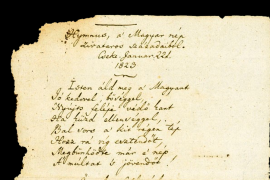 Hymnus, a' Magyar nép
zivataros századaiból.
Cseke Januar. 22d
1823
Isten áldd meg a' Magyart
Jó kedvvel, bőséggel,
Nyújts feléje védő kart
Ha küzd ellenséggel;
Bal sors a' kit régen tép
Hozz rá víg esztendőt,
Megbűnhődte már e' nép
A' múltat 's jövendőt!